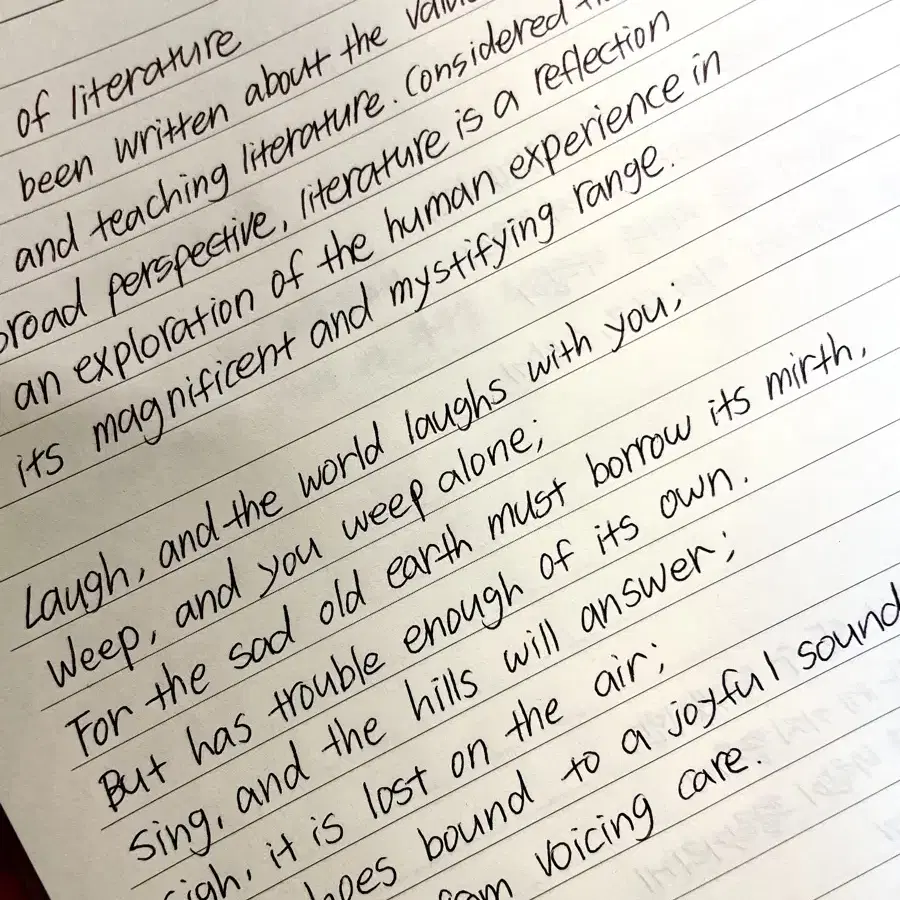 of literature
been written about the
and teaching literature. Considered
road perspective, literature is a reflection
an exploration of the human experience in
its magnificent and mystifying range.
Laugh, and the world laughs with you;
Weep, and you weep alone;
For the sad old earth must borrow its mirth,
But has trouble enough of its own.
Sing, and the hills will answer;
sigh, it is lost on the air;
hoes bound to a joyful sound
voicing care.